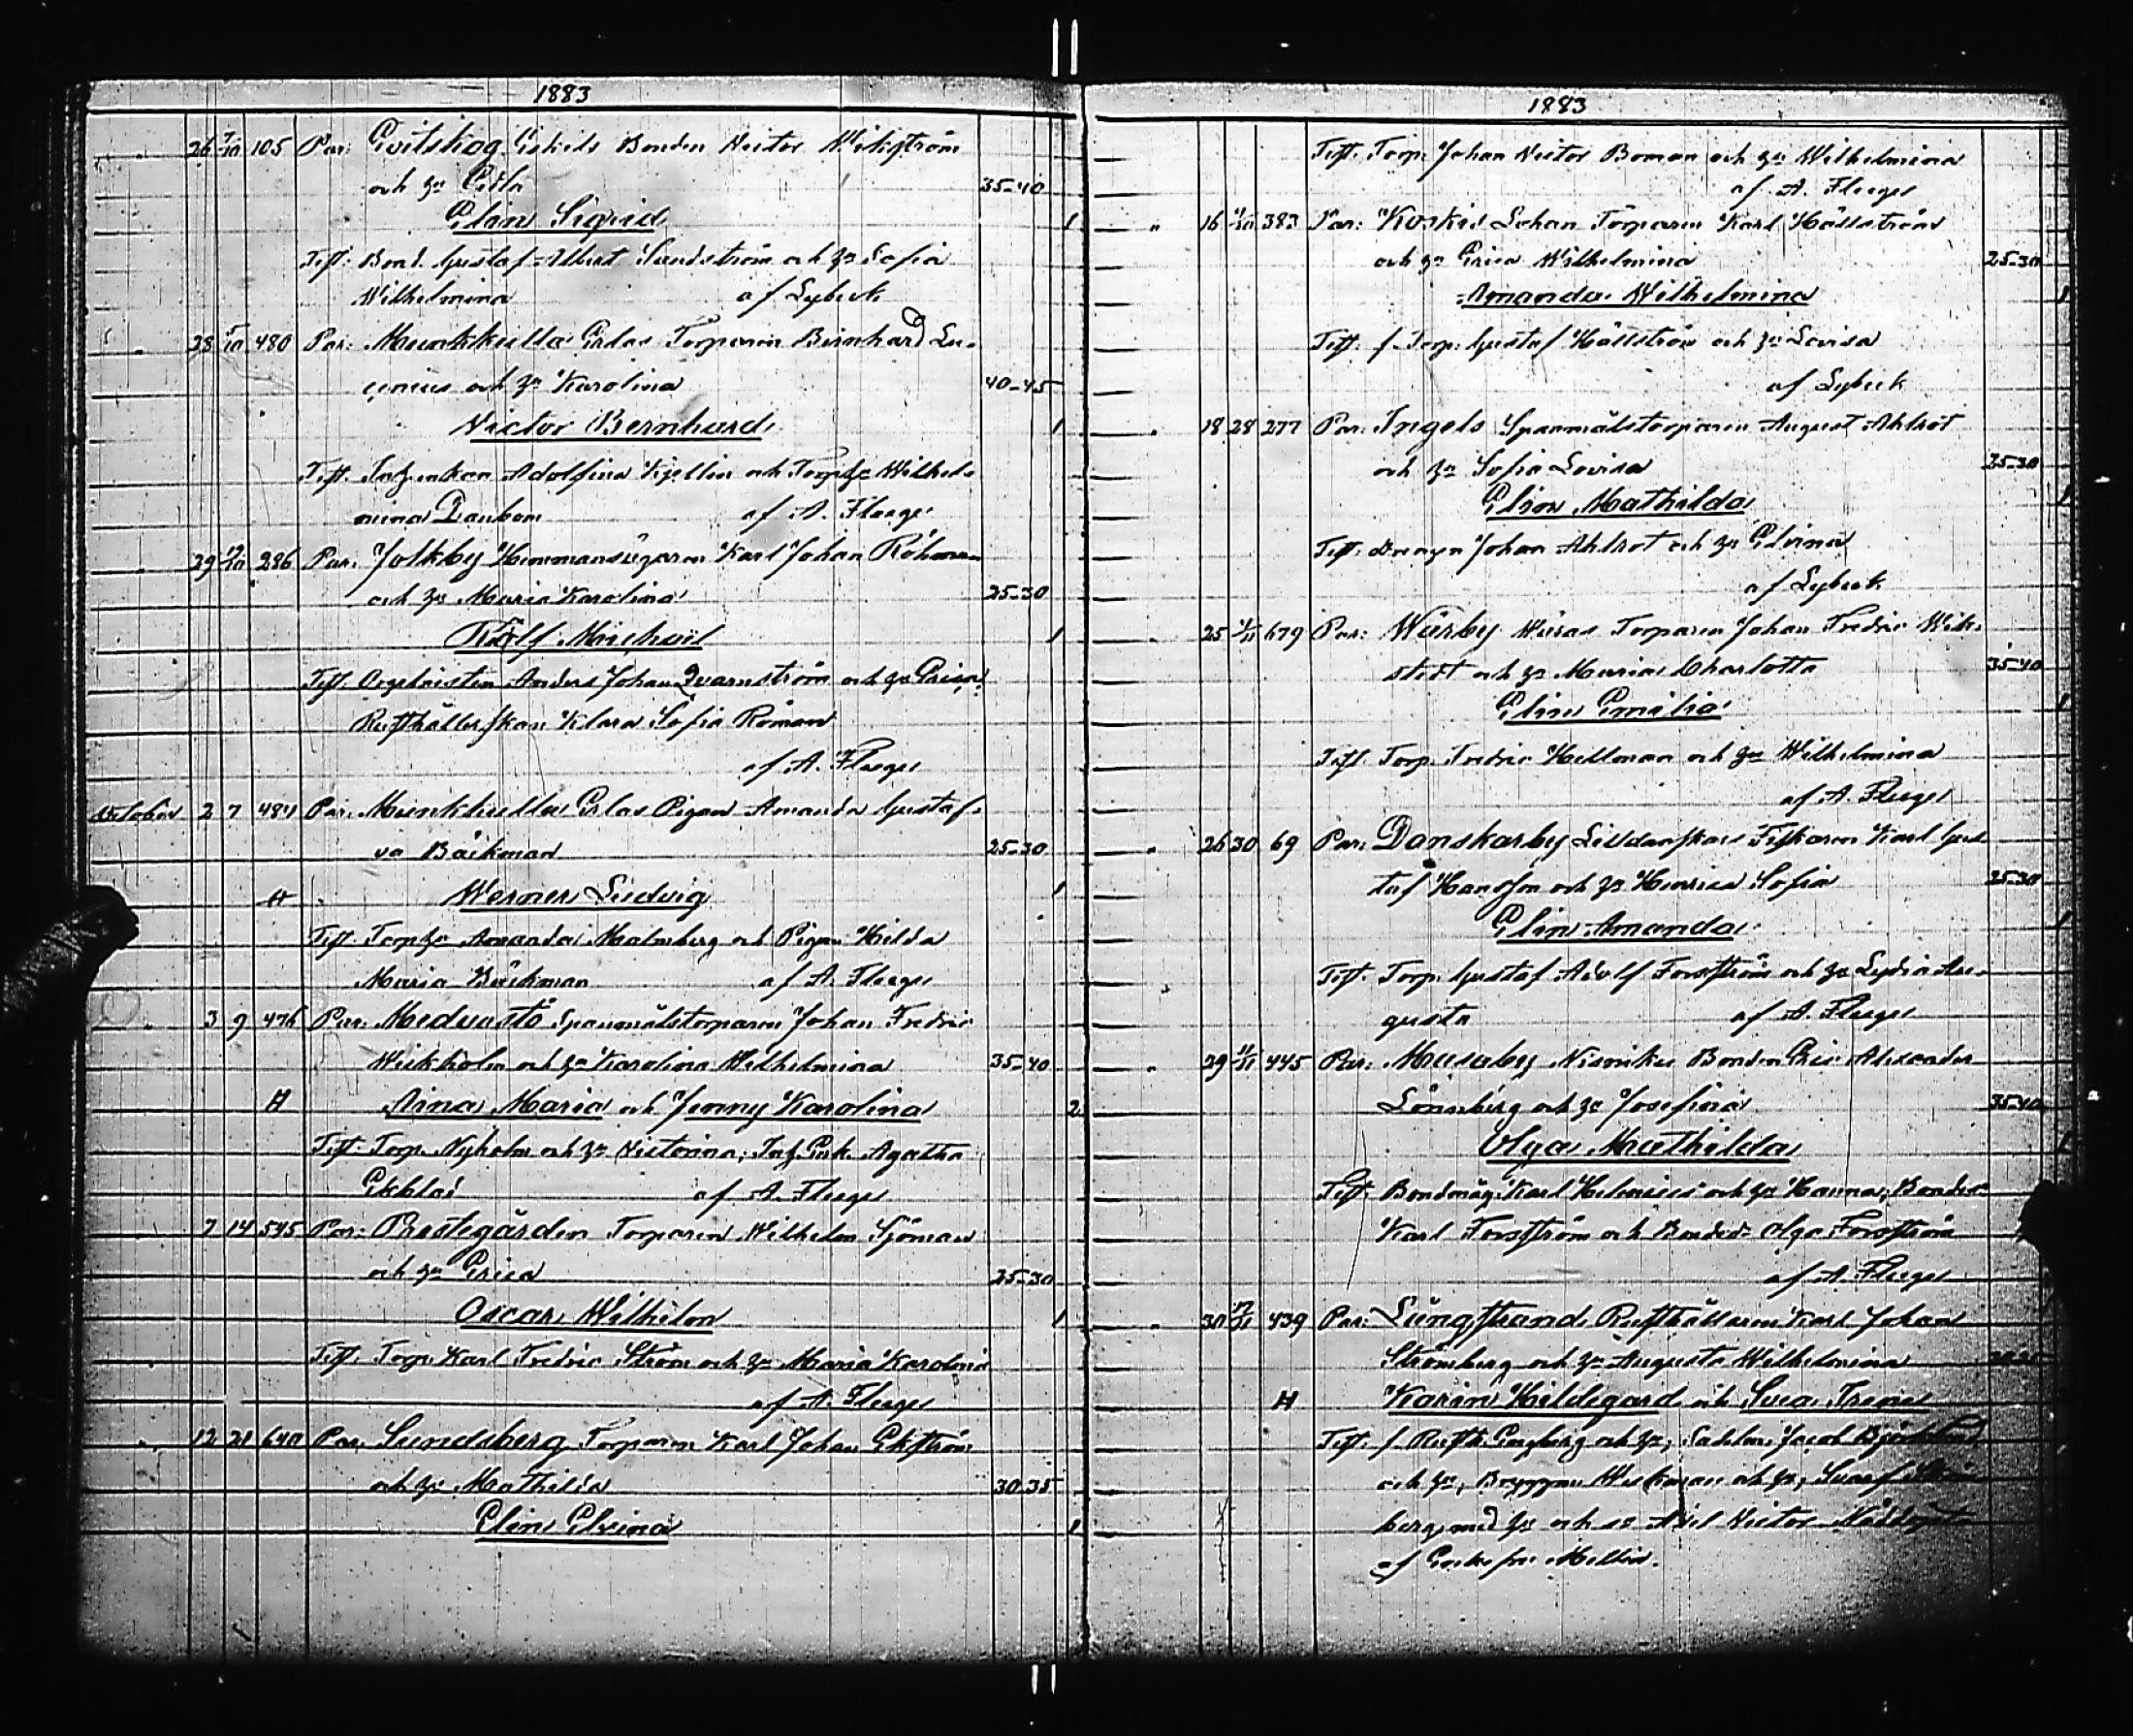 1883
" 26 7/10 105 Par: Evitskog Eskils Bonden Victor Wikström
och hu Edla 35-40
Elin Sigrid 1
Test: Bond. Gustaf Albert Sundström och hu Sofia
Wilhelmina af Lybeck
" 28 5/10 480 Par: Munkkulla Erlas Torparen Birnhard Lu-
cenius och hu Karolina 40-45
Victor Bernhard 1
Test. Adolfina Kjellin och Wilhel-
mina Danbom af A. Fleege
" 29 286 Par. Jolkby Hemmansägaren Karl Johan Röhman
och hu Maria Karolina 25-30
Rolf Michaël 1
Test. Orgelnisten Anders Johan Qvarnström och hu Erica,
Rusthållerskan Klara Sofia Röman
af A. Fleege
October 2 7 481 Par. Munkkulla Erlas Pigan Amanda Gustaf-
va Bäckman 25-30
H Werner Ludvig 1
Test. Amanda Malmberg och Pigan Hilda
Maria Bäckman af A. Fleege
" 3 9 476 Par: Medvastö Spanmålstorparen Johan Fredric
Wickholm och hu Karolina Wilhelmina 35-40
H Aina Maria och Jenny Karolina 2
Test. Torp. Nyholm och hu Victorina; Agatha
Ekblad af A. Fleege
7 14 545 Par: Prestegården Torparen Wilhelm Sjöman
och hu Erica 25-30
Oscar Wilhelm 1
Test. Torp. Karl Fredric Ström och hu Maria Karolina
af A. Fleege
" 12 21 640 Par: Sundsberg Torparen Karl Johan Ekström
och hu Mathilda 30-35
Elin Elvina 1
1883
Test. Torp. Johan Victor Boman och hu Wilhelmina
af A. Fleege
" 16 383 Par: Koskis Lohan Torparen Karl Hällström
och hu Erica Wilhelmina 25-30
Amanda Wilhelmina 1
Test: f. Torp. Gustaf Hällström och hu Lovisa
af Lybeck
" 18 28 277 Par: Ingels Spanmålstorparen August Ahlrot
och hu Sofia Lovisa 25-30
Elin Mathilda 1
Test: Drengen Johan Ahlrot och hu Elvina
af Lybeck
" 25 4/11 679 Par: Wärby Wäras Torparen Johan Fredric Wik-
stedt och hu Maria Charlotta 35-40
Elin Emilia 1
Test Torp. Fredric Hellman och hu Wilhelmina
af A. Fleege
" 26 30 69 Par: Danskarby Fiskaren Karl Gus-
taf Hansson och hu Henrica Sofia 25-30
Elin Amanda 1
Test. Torp. Gustaf Adolf Forsström och hu Lydia Au-
gusta af A. Fleege
" 29 11/11 445 Par: Masaby Nissnikus Bonden Eric Alexander
Lönnberg och hu Josefina 35-40
Olga Mathilda 1
Test. Karl Helenius och hu Hanna; Bondes.
Karl Forsström och Bonded. Olga Forsström
af A. Fleege
" 30 439 Par: Långstrand Rusthållaren Karl Johan
Strömberg och hu Augusta Wilhelmina
H Karin Hildegard och Svea Irene
Test: f. Rusth. Engberg och hu; Jacob
och hu; Wickman och hu;
berg med hu och Axel Victor
af Mellin.